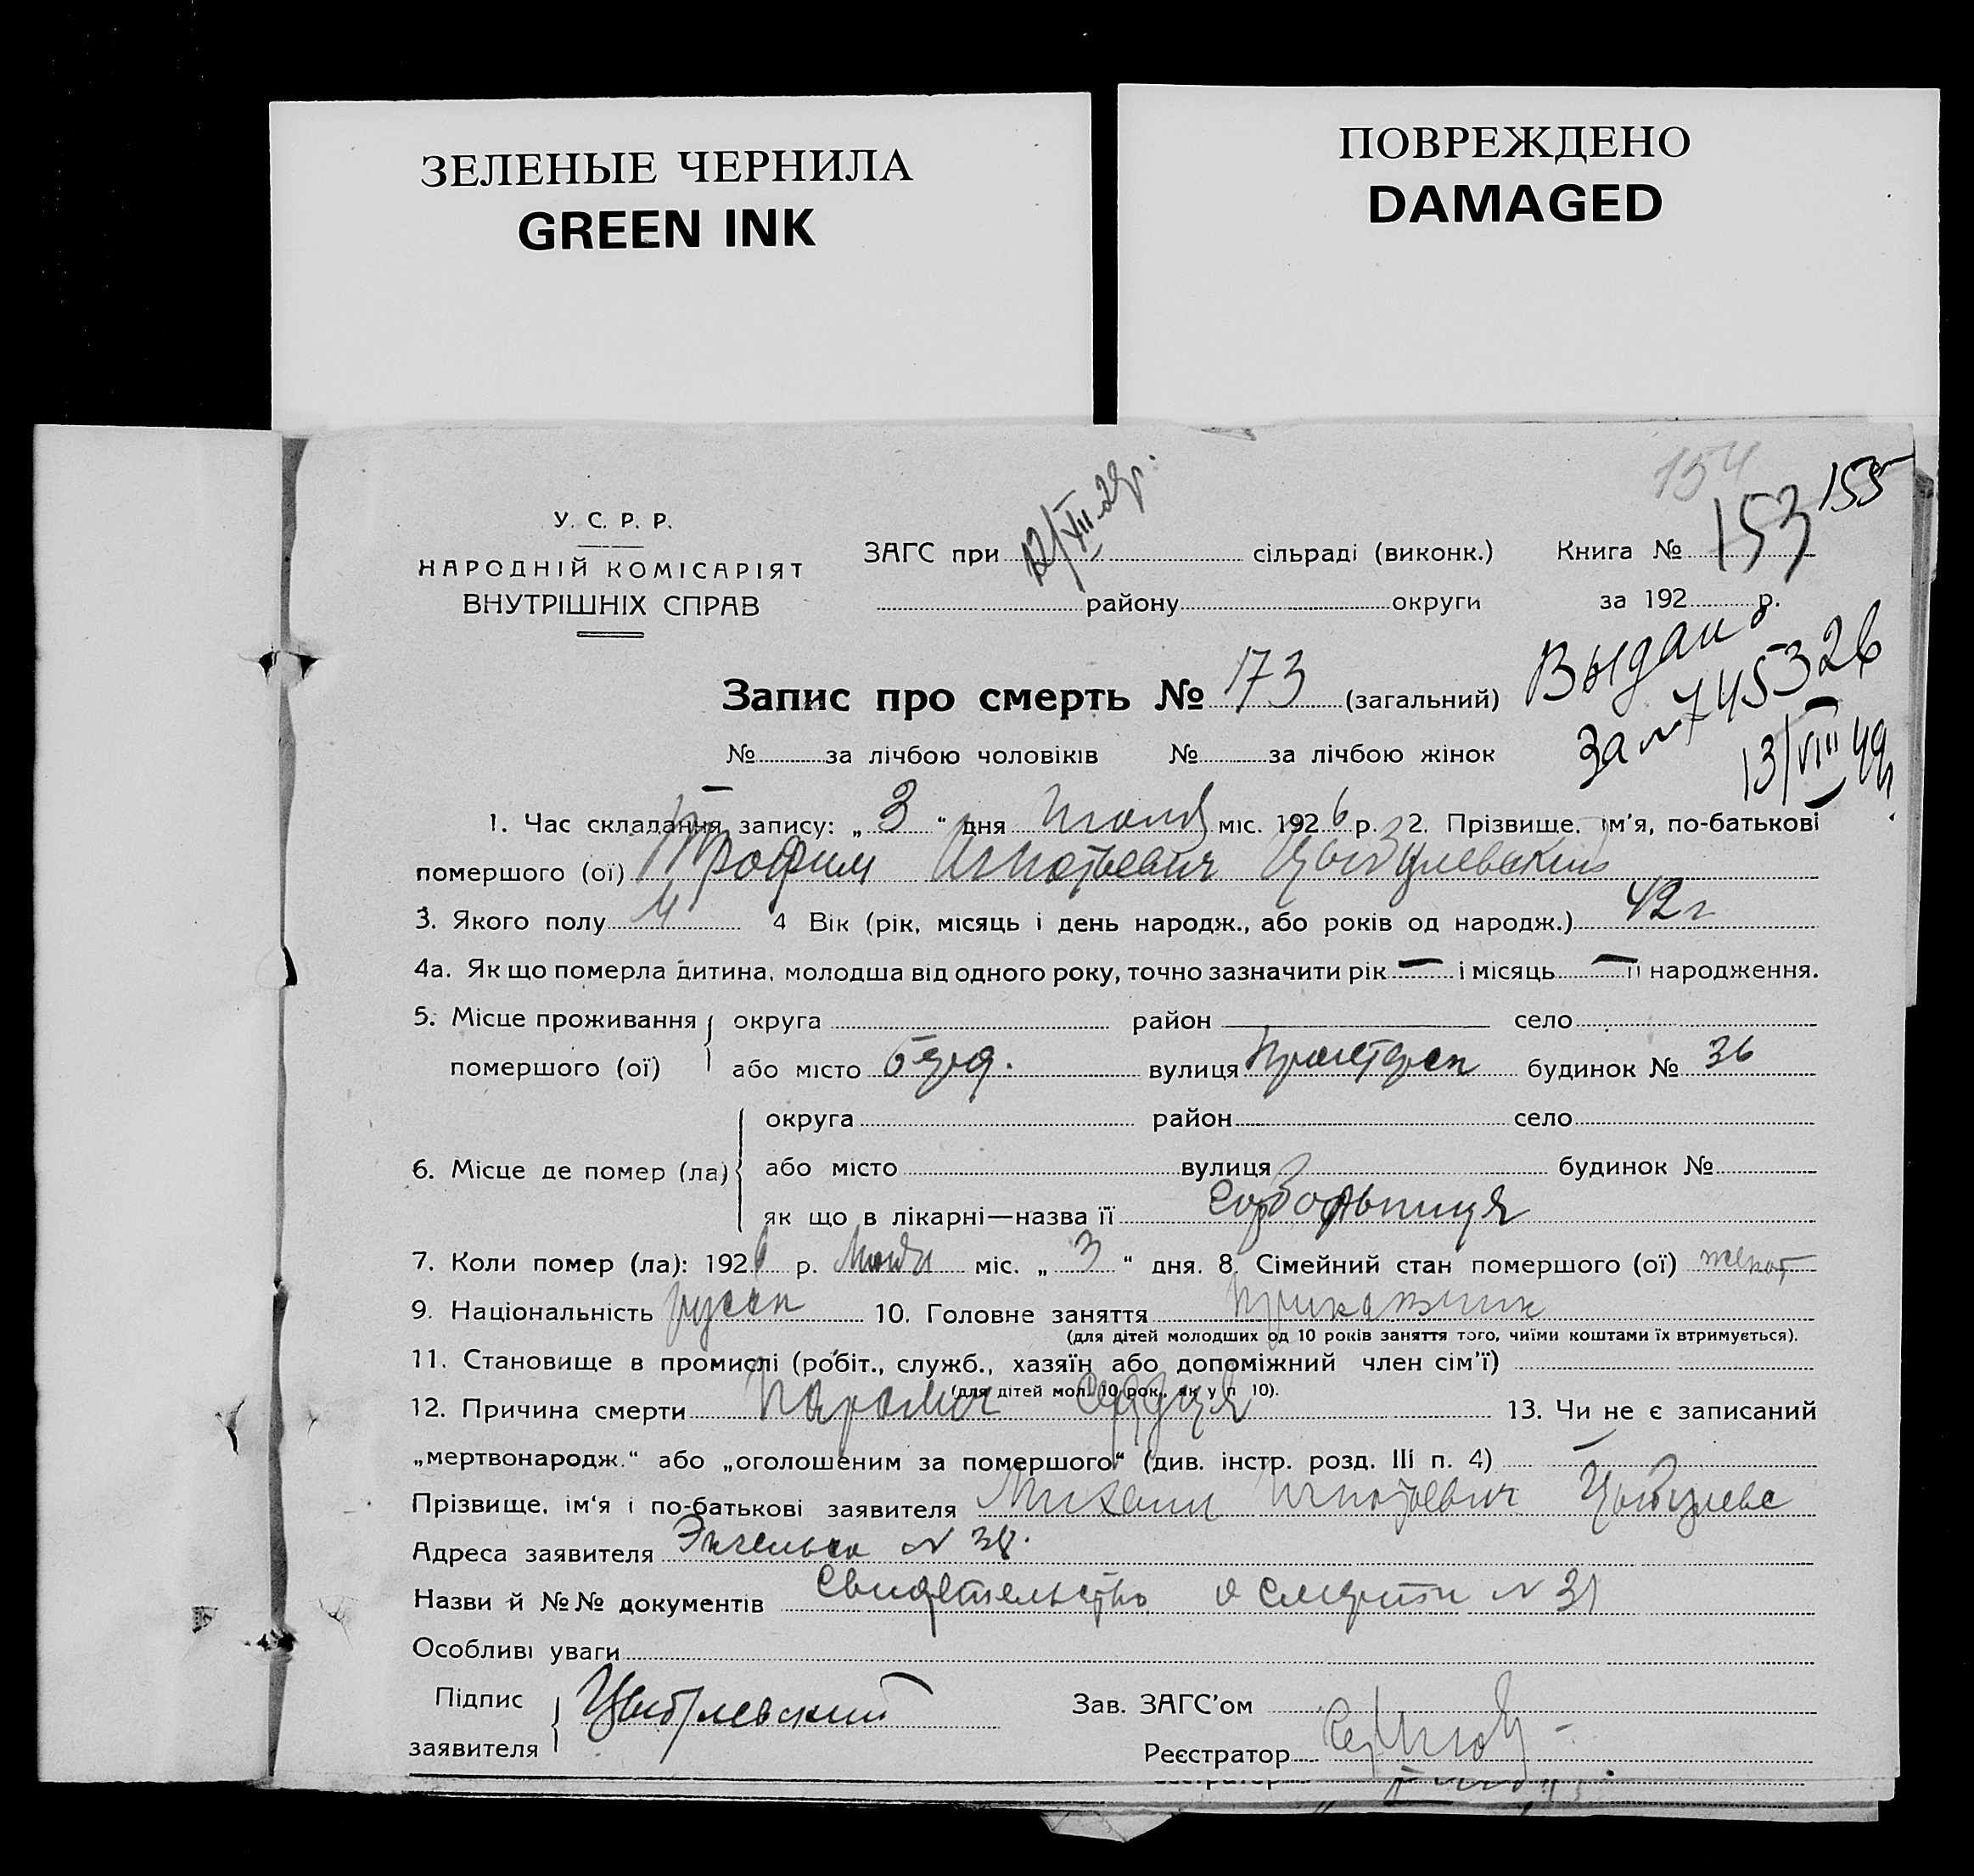 ЗЕЛЕНЫЕ ЧЕРНИЛА
GREEN INK
ПОВРЕЖДЕНО
DAMAGED
154
153 155
У. С. Р. Р.
НАРОДНІЙ КОМІСАРІЯТ
ВНУТРІШНІХ СПРАВ
ЗАГС при 12/XII-29р. сільраді (виконк.) Книга №
району округи за 192 р.
Выдано
за № 745326
13/VIII 49г.
Запис про смерть № 173 (загальний)
№ за лічбою чоловіків № за лічбою жінок
1. Час складання запису: „ 3 “ дня Июля міс. 1926 р. 2. Прізвище, ім'я, по-батькові
помершого (ої) Трофим Игнатьевич Цыбулевский
3. Якого полу М 4 Вік (рік, місяць і день народж., або років од народж.) 42 г
4а. Як що померла дитина, молодша від одного року, точно зазначити рік — і місяць — її народження.
5. Місце проживання округа район село
помершого (ої) або місто вулиця будинок № 36
округа район село
6. Місце де помер (ла) або місто вулиця будинок №
як що в лікарні—назва її горбольница
7. Коли помер (ла): 1926 р. Июля міс. „ 3 “ дня. 8. Сімейний стан помершого (ої) женат
9. Національність русск 10. Головне заняття приказчик
(для дітей молодших од 10 років заняття того, чиїми коштами їх втримується).
11. Становище в промислі (робіт., служб., хазяїн або допоміжний член сім'ї)
(для дітей мол. 10 рок., як у п 10).
12. Причина смерти Паралич сердця 13. Чи не є записаний
„мертвонародж.“ або „оголошеним за помершого“ (див. інстр. розд. III п. 4) —
Прізвище, ім'я і по-батькові заявителя Михаил Игнатьевич Цыбулевс
Адреса заявителя Энгельса № 38.
Назви й №№ документів Свидетельство о смерти № 31
Особливі уваги
Підпис
заявителя Цыбулевский
Зав. ЗАГС'ом
Реєстратор